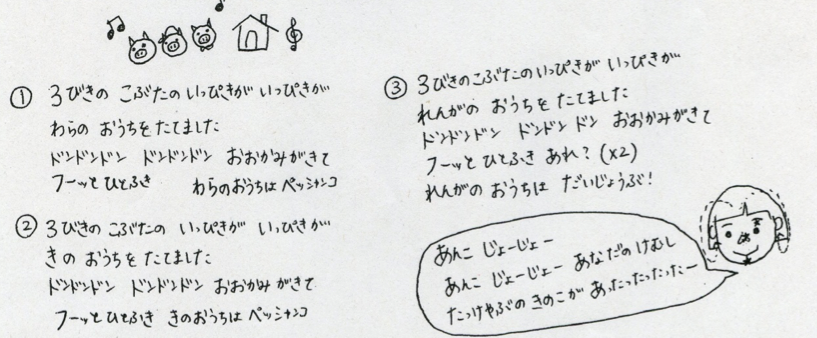 ① 3びきの こぶたの いっぴきが いっぴきが
わらの おうちを たてました
ドンドンドン ドンドンドン おおかみがきて
フーッと ひとふき わらのおうちは ペッシャンコ
② 3びきの こぶたの いっぴきが いっぴきが
きの おうちを たてました
ドンドンドン ドンドンドン おおかみ がきて
フーッと ひとふき きのおうちは ペッシャンコ
③ 3びきのこぶたのいっぴきが いっぴきが
れんがの おうちを たてました
ドンドンドン ドンドン ドン おおかみがきて
フーッと ひとふき あれ？(×2)
れんがの おうちは だいじょうぶ！
あんこ じょーじょー
あんこ じょーじょー あなだのけむし
たっけやぶの きのこが あったったったったー